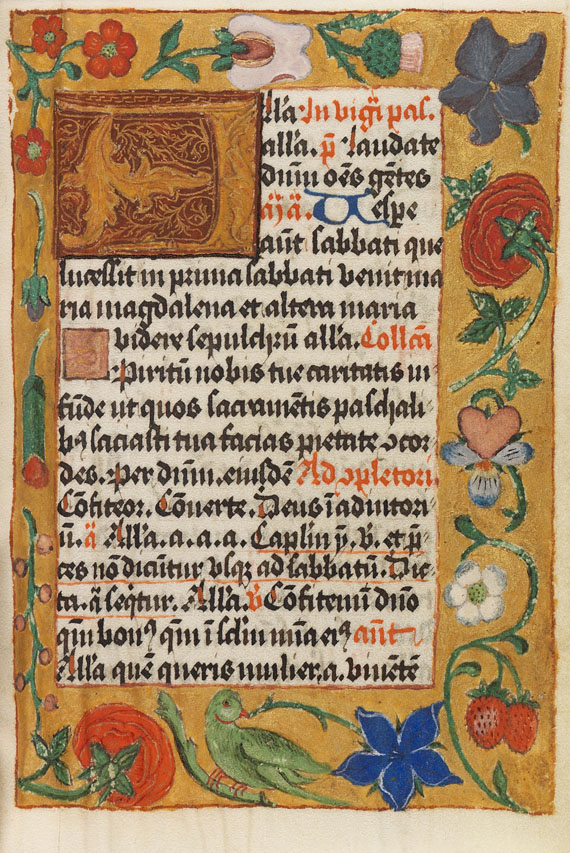 Alla In vigi pas.
alla. p̄ laudate
dnm oēs gētes
Vespe
aūt sabbati que
lucessit in prima sabbati venit ma
ria magdalena et altera maria
videre sepulchrū alla. Collcā
Spiritū nobis tue caritatis in
fūde ut quos sacramētis paschali
bꝰ saciasti tua facias pietate ꝯcor
des. Per dnm. eiusdē Ad ꝯpletori.
Cōfiteor. Cōuerte. Deus ī adiutori
ū. ā Alla. a. a. a. Caplm ÿ. v̄. et p̄
ces nō dicūtur vsqꝫ ad sabbatū. Dic
ta. ā seqtur. Alla. v̄ Cōfitemī dno
qm bonꝰ qm ī sclm mīa eiꝰ aūt
Alla quē queris mulier. a. viuētē